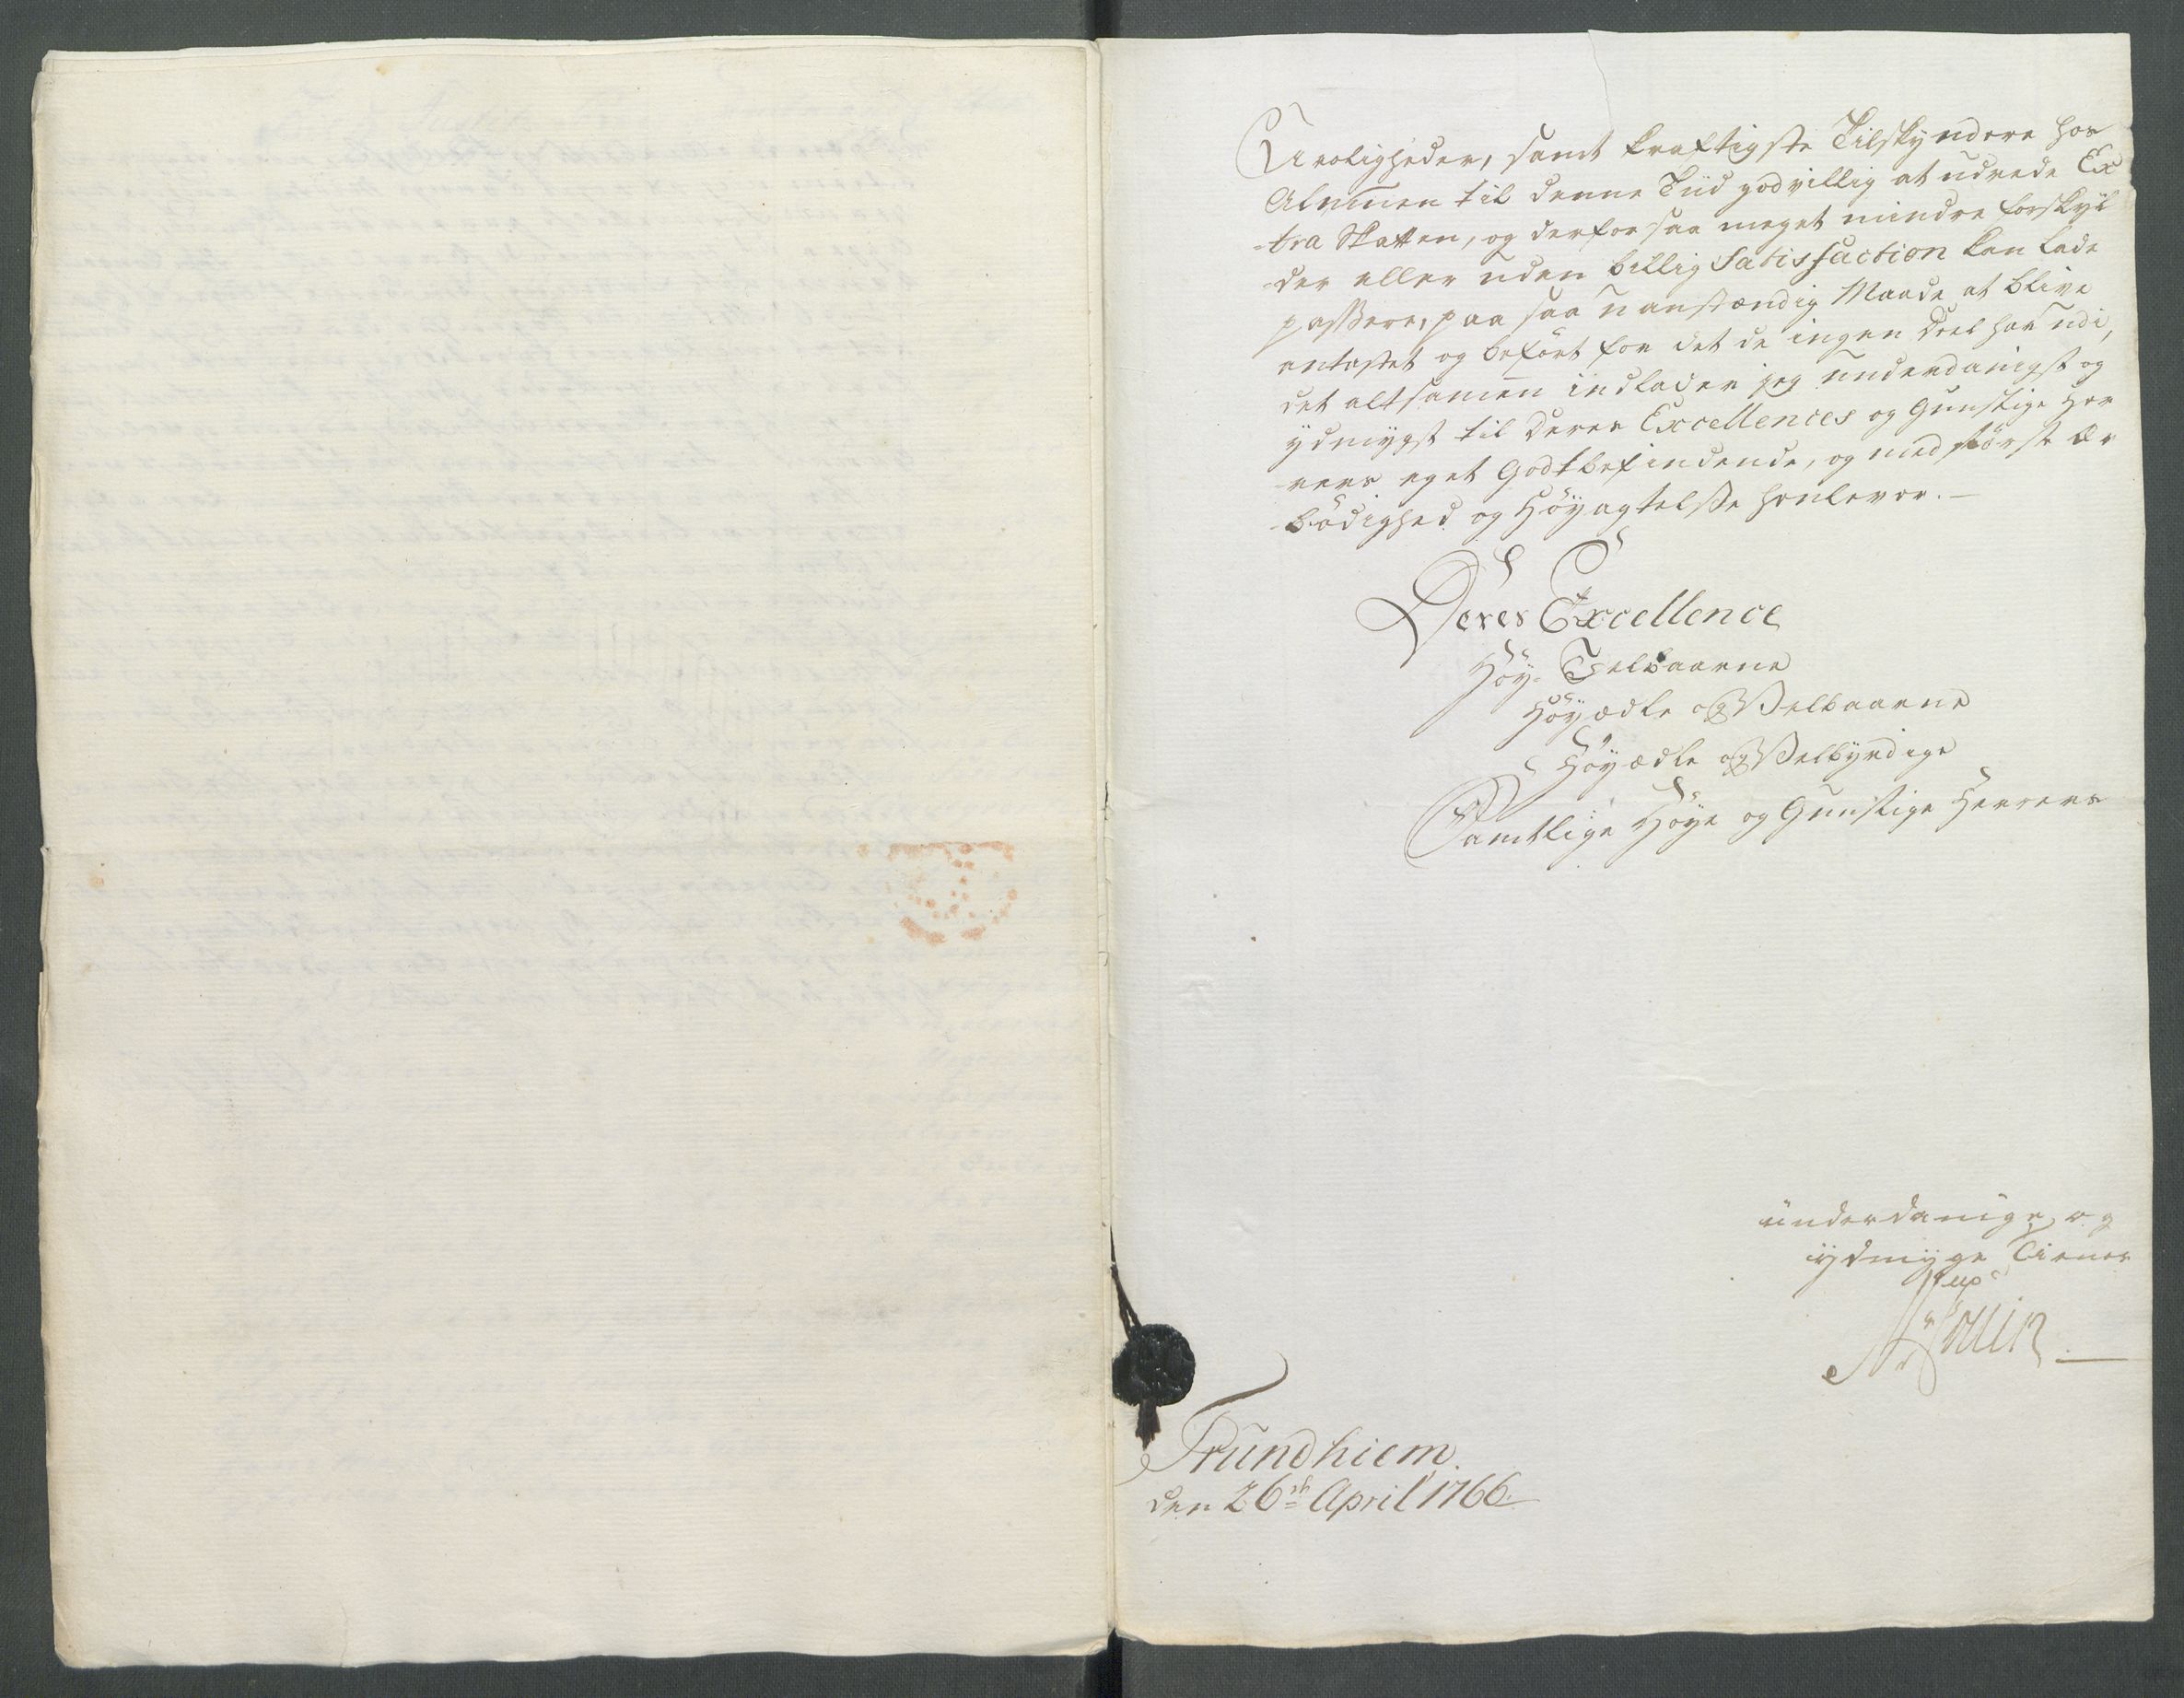 Uroligheder, samt kraftigste Tilskyndere hos
Almuen til denne Tiid godvillig at udrede Ex
-tra Skatten, og derfor saa meget mindre forskyl
-der eller uden billig Satisfaction kan lade
passere, paa saa uanstændig Maade at blive
antastet og beført for det de ingen Deel har udi,
det altsamen indlader jeg underdanigst og
ydmygst til Deres Excellences og Gunstige Her
rers eget Godtbefindende, og med störste Ær
-bödighed og Höyagtelse henlever.-
Deres Excellence
Höy-Velbaarne
Höyædle og Velbaarne
Höyædle og Velbyrdige
Samtlige Höye og Gunstige Herrers
underdanige og
ydmyge Tiener
Trundhiem.
den 26de April 1766.